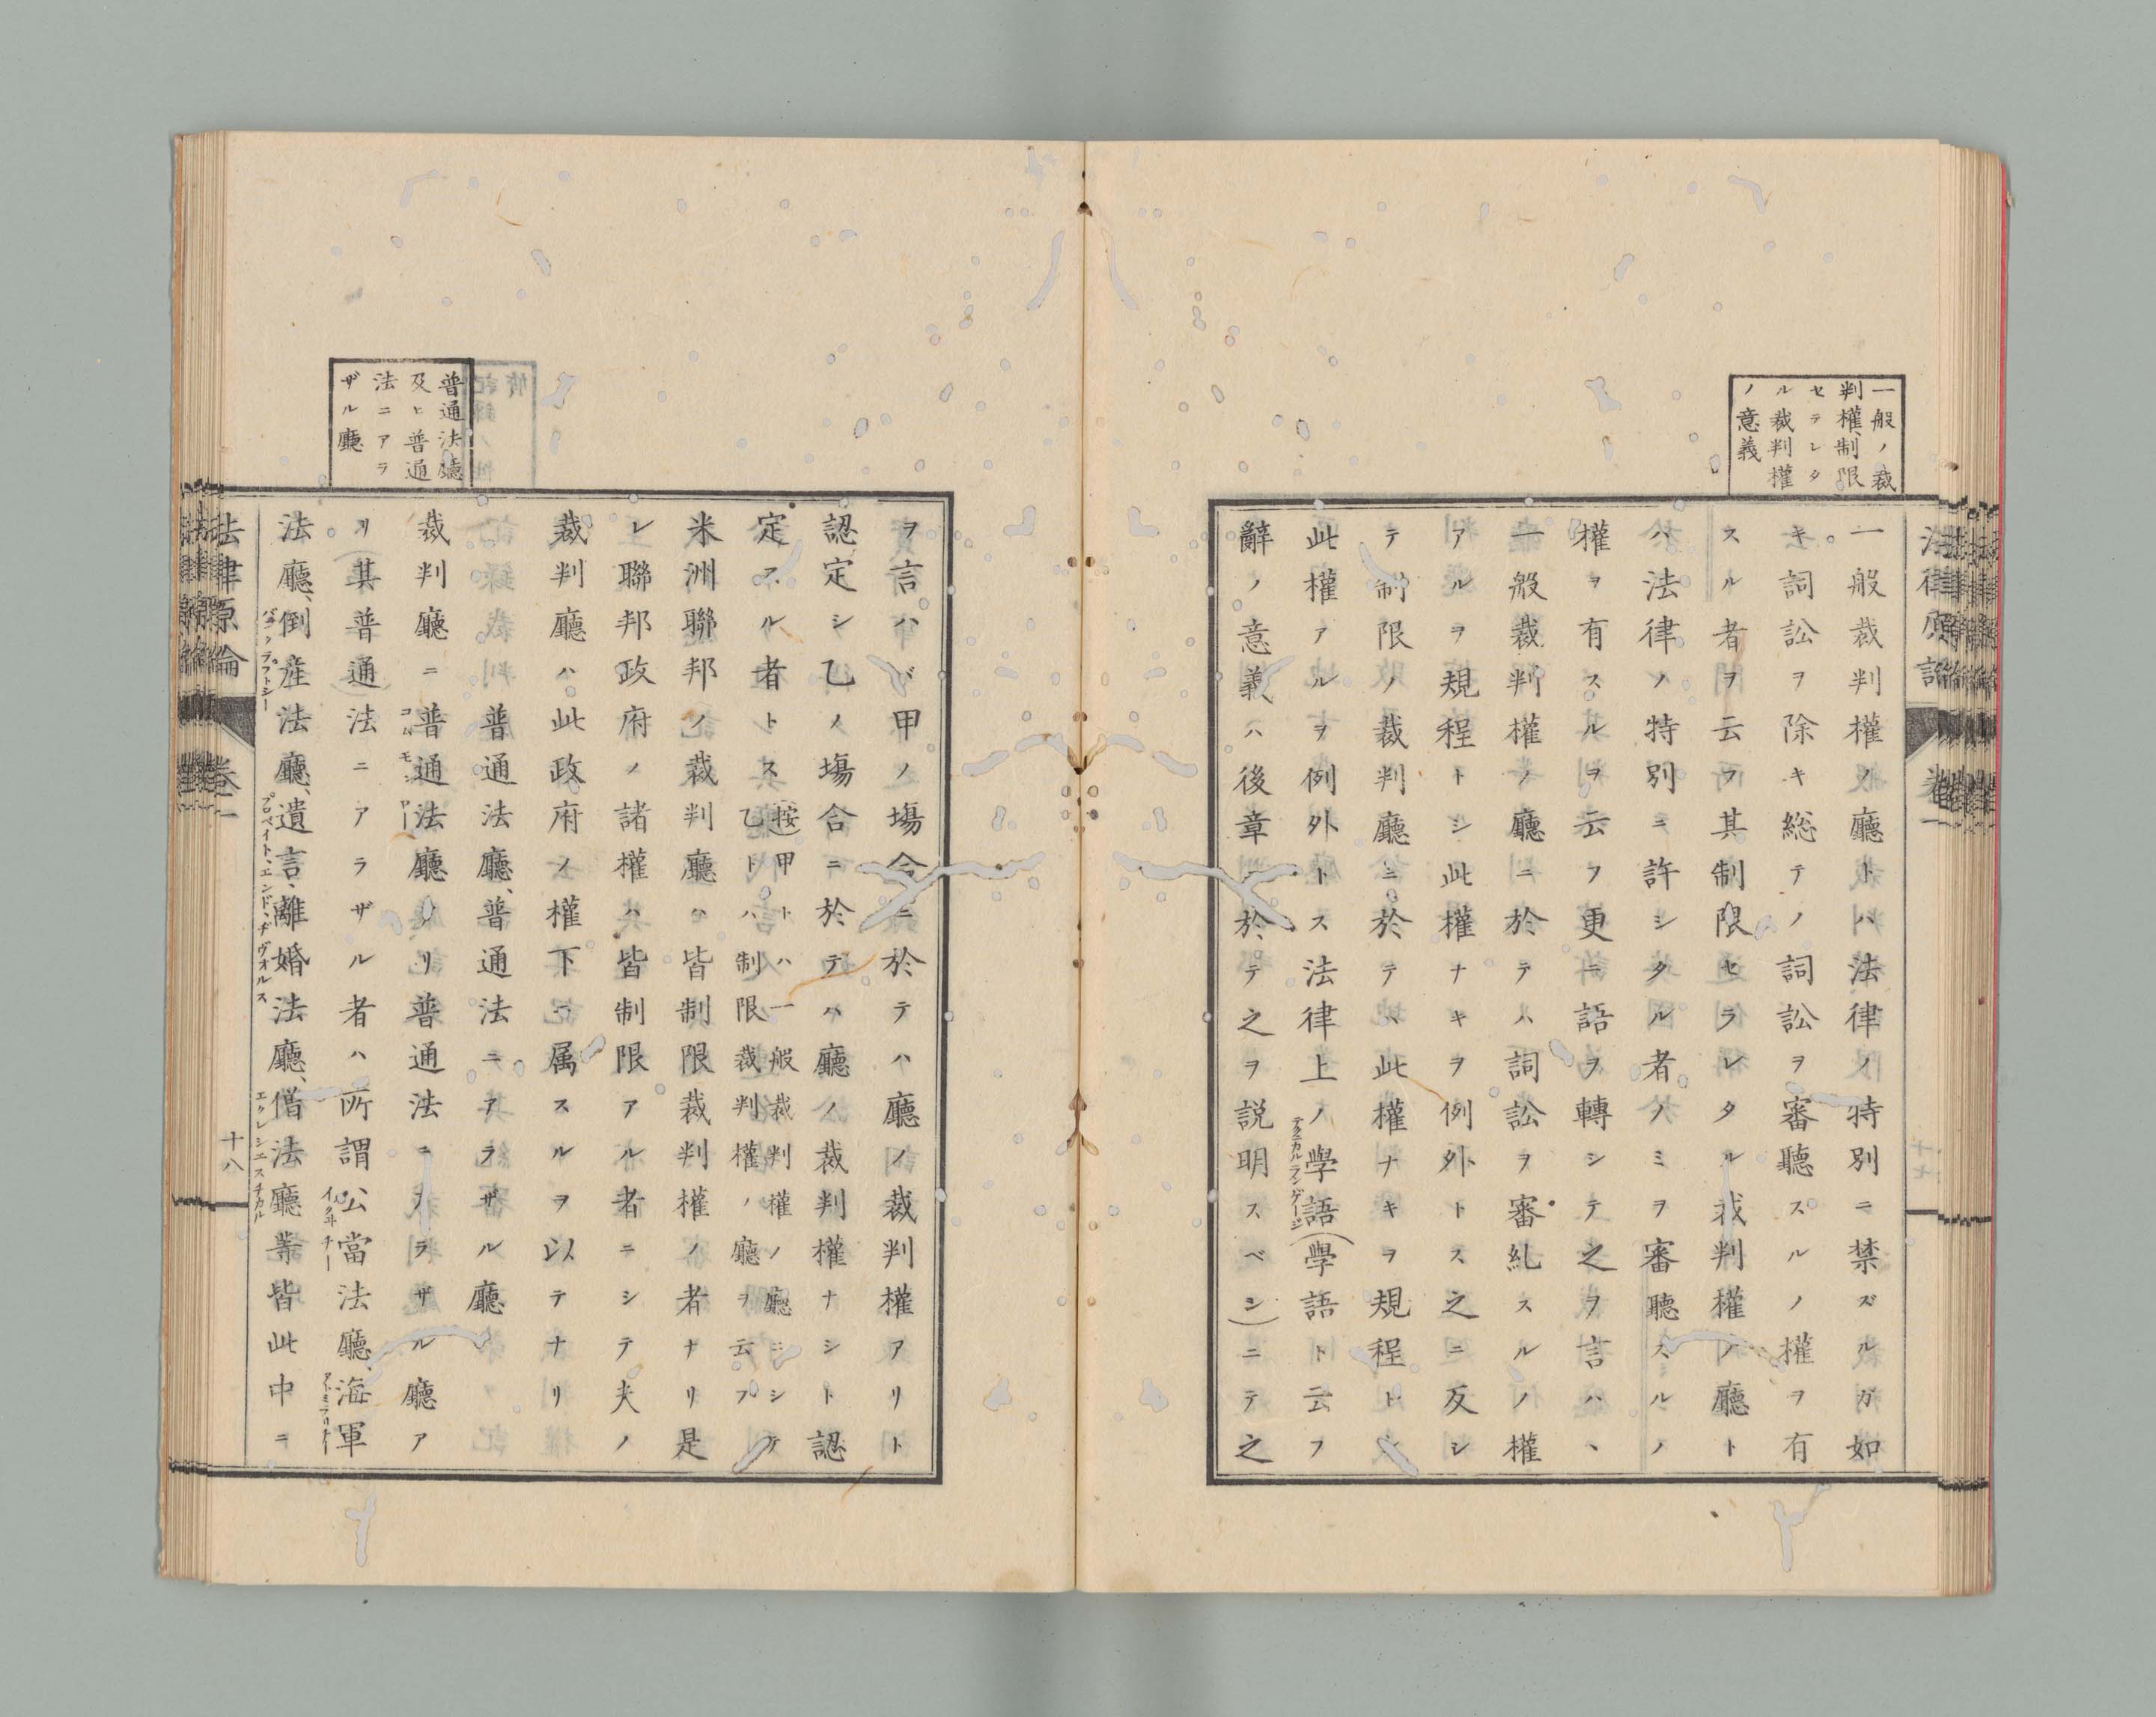 一般ノ裁
判權、制限
セラレタ
ル裁判權
ノ意義
一般裁判權ノ廳トハ法律ノ特別ニ禁ズルガ如
キ詞訟ヲ除キ総テノ詞訟ヲ審聽スルノ權ヲ有
スル者ヲ云フ其制限セラレタル裁判權ノ廳ト
ハ法律ノ特別ニ許シタル者ノミヲ審聽スルノ
權ヲ有スルヲ云フ更ニ語ヲ轉シテ之ヲ言ハヽ
一般裁判權ノ廳ニ於テハ詞訟ヲ審糺スルノ權
アルヲ規程トシ此權ナキヲ例外トス之ニ反シ
テ制限ノ裁判廳ニ於テハ此權ナキヲ規程トシ
此權アルヲ例外トス法律上ノ學語(學語ト云フ
テクニカルランゲージ
辭ノ意義ハ後章ニ於テ之ヲ説明スベシ)ニテ之
法律原論 卷一
普通法廳
及ヒ普通
法ニアラ
ザル廳
ヲ言ハヾ甲ノ塲合ニ於テハ廳ノ裁判權アリト
認定シ乙ノ塲合ニ於テハ廳ノ裁判權ナシト認
定スル者トス
(按)甲トハ一般裁判權ノ廳ニシテ
乙トハ制限裁判權ノ廳ヲ云フ
米洲聯邦ノ裁判廳ハ皆制限裁判權ノ者ナリ是
レ聯邦政府ノ諸權ハ皆制限アル者ニシテ夫ノ
裁判廳ハ此政府ノ權下ニ属スルヲ以テナリ
普通法廳、普通法ニアラザル廳
裁判廳ニ普通法廳アリ普通法ニアラザル廳ア
リ其普通法ニアラザル者ハ所謂公當法廳、海軍
イクヰチー
法廳、倒産法廳、遺言、離婚法廳、僧法廳等皆此中ニ
バンクラプトシー
プロベイト、エンド、ヂヴォルス
エクレシエスチカル
法律原論 卷一 十八